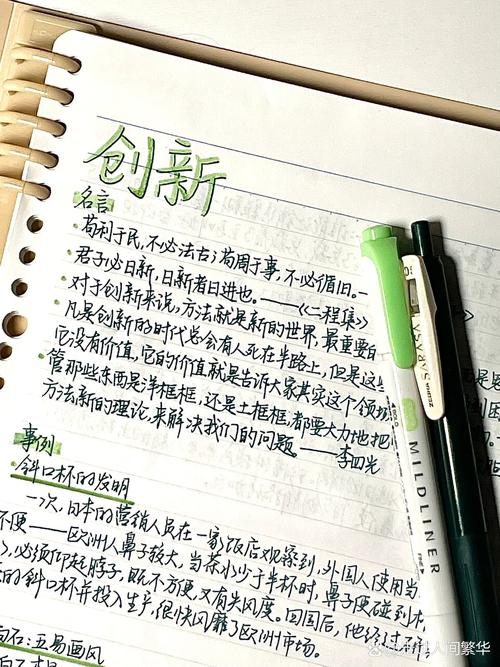 创新
名言
·苟利于民,不必法古;苟周于事,不必循旧。—
·君子必日新,日新者日进也。——《二程集》
·对于创新来说,方法就是新的世界,最重要
·凡是创新的时代必会有人死在半路上,但是这
它没有价值,它的价值就是告诉大家其实这个领
·管那些东西是洋框框,还是土框框,都要大力地把
方法,新的理论,来解决我们的问题。——李四光
事例
·斜口杯的发明
一次,日本的营销人员在一家饭店观察到,外国人使用当
不便——欧洲人鼻子较大,当茶水少于半杯时,鼻子便碰到
,必须仰起脖子,既不方便,又有失风度。回国后,他经过
的斜口杯并投入生产,很快风靡了欧洲市场。
白石:五易画风
SARASA
ZEBRA
MILDLINER
人间繁华